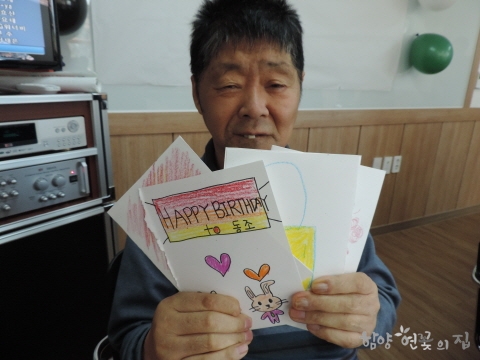 HAPPY BIRTHDAY
to 동조
함양 연꽃의 집